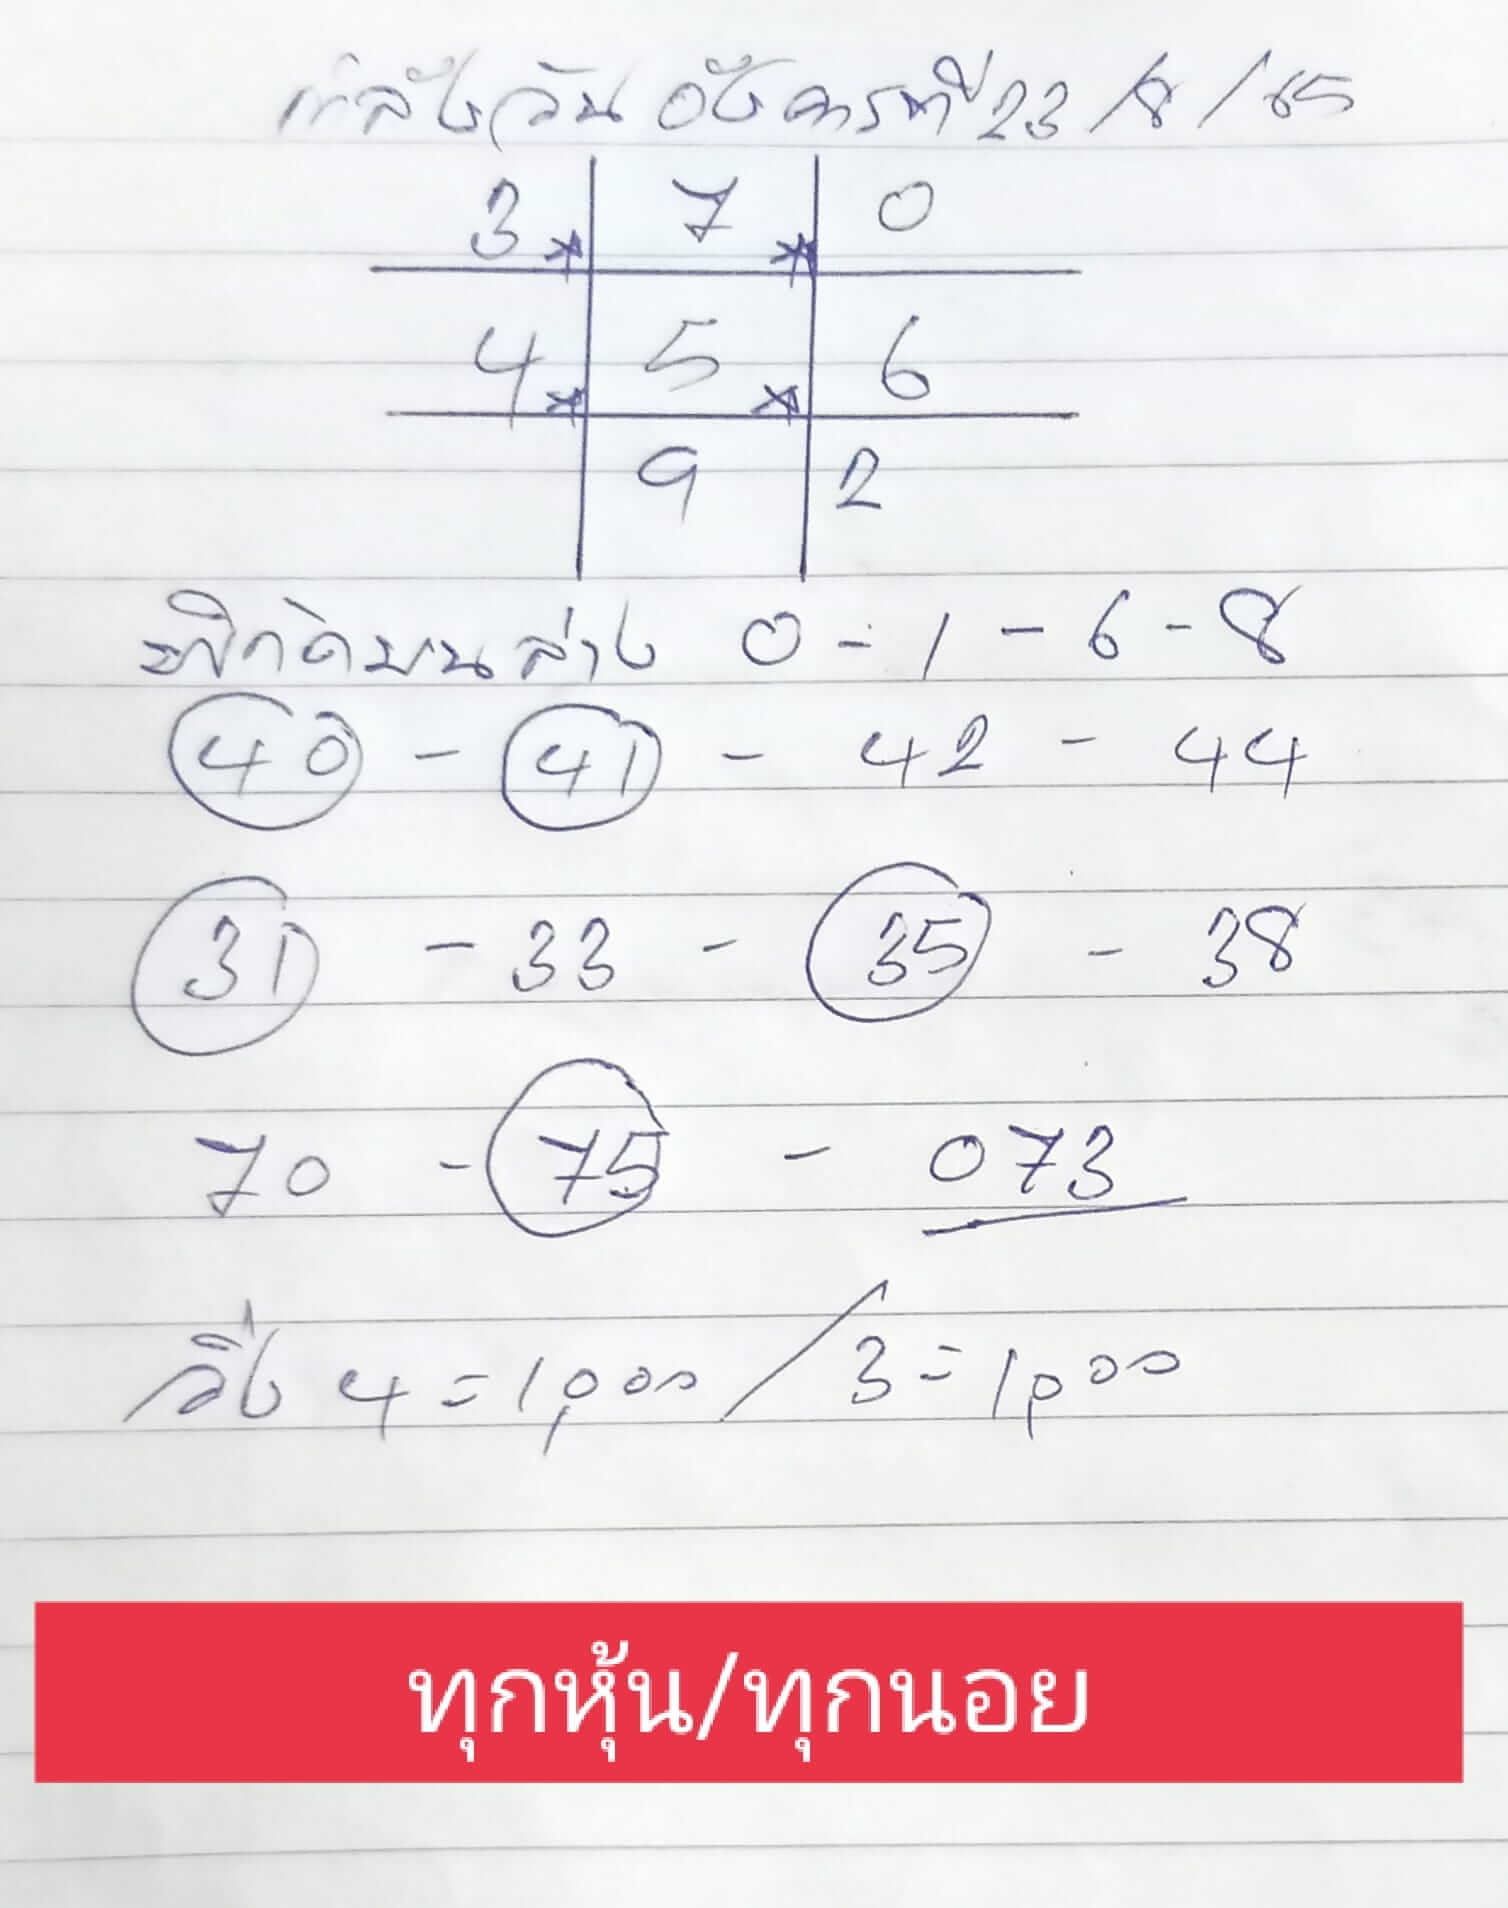 กำลังวันอังคารที่ 23/8/65
3 7 0
4 5 6
9 2
พิกัดบนล่าง 0-1-6-8
40 - 41 - 42 - 44
31 - 33 - 35 - 38
70 - 75 - 073
วิ่ง 4=1,000 / 3=1,000
ทุกหุ้น/ทุกนอย